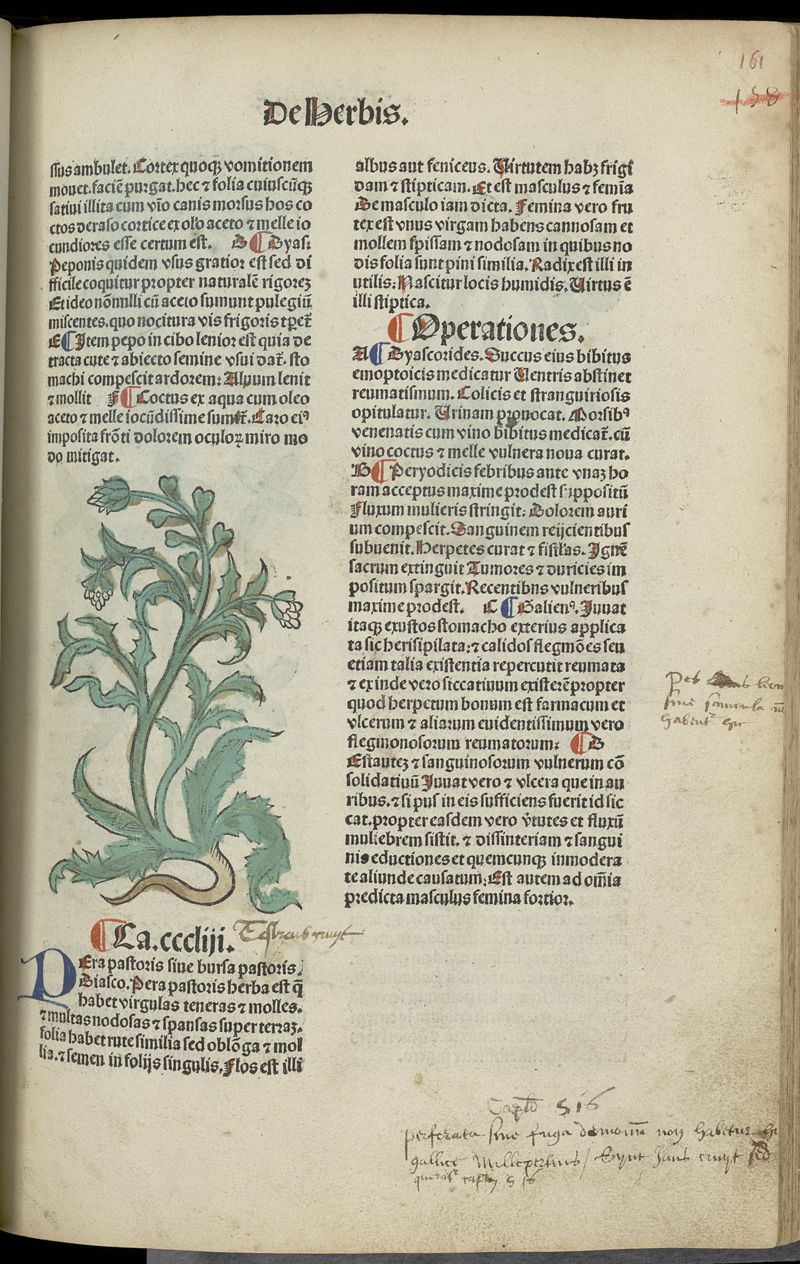 161
158
De Herbis.
ssus ambulet. Cortex quoqꝫ vomitionem
mouet. faciē purgat. hec ⁊ folia cuiuscūqꝫ
satiui illita cum vīo canis morsus hos co
ctos deraso cortice ex olo aceto ⁊ melle io
cundiores esse certum est. D ¶ Dyas:
Peponis quidem vsus gratior est sed di
fficile coquitur propter naturalē rigorez
Et ideo nōnulli cū aceto sumunt pulegiū
miscentes. quo nocitura vis frigoris tꝑet̄
E ¶ Item pepo in cibo lenior est quia de
tracta cute ⁊ abiecto semine vsui dat̄. sto
machi compescit ardorem: Aluum lenit
⁊ mollit F ¶ Coctus ex aqua cum oleo
aceto ⁊ melle iocūdissime sumit̄. Caro eiꝰ
imposita frōti dolorem oculoꝝ miro mo
do mitigat.
¶ Ca. cccliij.
Pera pastoris siue bursa pastoris.
Diasco. Pera pastoris herba est q̄
habet virgulas teneras ⁊ molles.
⁊ multas nodosas ⁊ spansas super terraz.
folia habet rute similia sed oblōga ⁊ mol
lia. ⁊ semen in folijs singulis. Flos est illi
albus aut feniceus. Virtutem habꝫ frigi
dam ⁊ stipticam. Et est masculus ⁊ femīa
De masculo iam dicta. Femina vero fru
tex est vnus virgam habens cannosam et
mollem spissam ⁊ nodosam in quibus no
dis folia sunt pini similia. Radix est illi in
utilis: Nascitur locis humidis. Virtus ē
illi stiptica.
¶ Operationes.
A ¶ Dyascorides. Succus eius bibitus
emoptoicis medicatur Ventris abstinet
reumatisinum. Colicis et stranguriosis
opitulatur. Urinam prouocat. Morsibꝰ
venenatis cum vino bibitus medicat̄. cū
vino coctus ⁊ melle vulnera noua curat.
B ¶ Peryodicis febribus ante vnaz ho
ram acceptus maxime prodest suppositū
Fluxum mulieris stringit: Dolorem auri
um compescit. Sanguinem reijcientibus
subuenit. Herpetes curat ⁊ fistlas. Ignē
sacrum extinguit Tumores ⁊ duricies im
positum spargit. Recentibus vulneribus
maxime prodest. C ¶ Galienꝰ. Iuuat
itaqꝫ exustos stomacho exterius applica
ta sic herisipilata: ⁊ calidos flegmōes seu
etiam talia existentia repercutit reumata
⁊ exinde vero siccatiuum existerē propter
quod herpetum bonum est farmacum et
vlcerum ⁊ aliarum euidentissimum vero
flegmonosorum reumatorum: ¶ D
Est autez ⁊ sanguinosorum vulnerum cō
solidatiuū Iuuat vero ⁊ vlcera que in au
ribus. ⁊ si pus in eis sufficiens fuerit id sic
cat. propter easdem vero v̄tutes et fluxū
muliebrem sistit. ⁊ dissinteriam ⁊ sangui
nis eductiones et quemcunqꝫ inmodera
te aliunde causatum: Est autem ad om̄ia
predicta masculus femina fortior.
Pes
siue
habent̄
Capło 516
perforata siue fuga demonū non habetur
gallice Millepertuis / Synt Jans cruyt